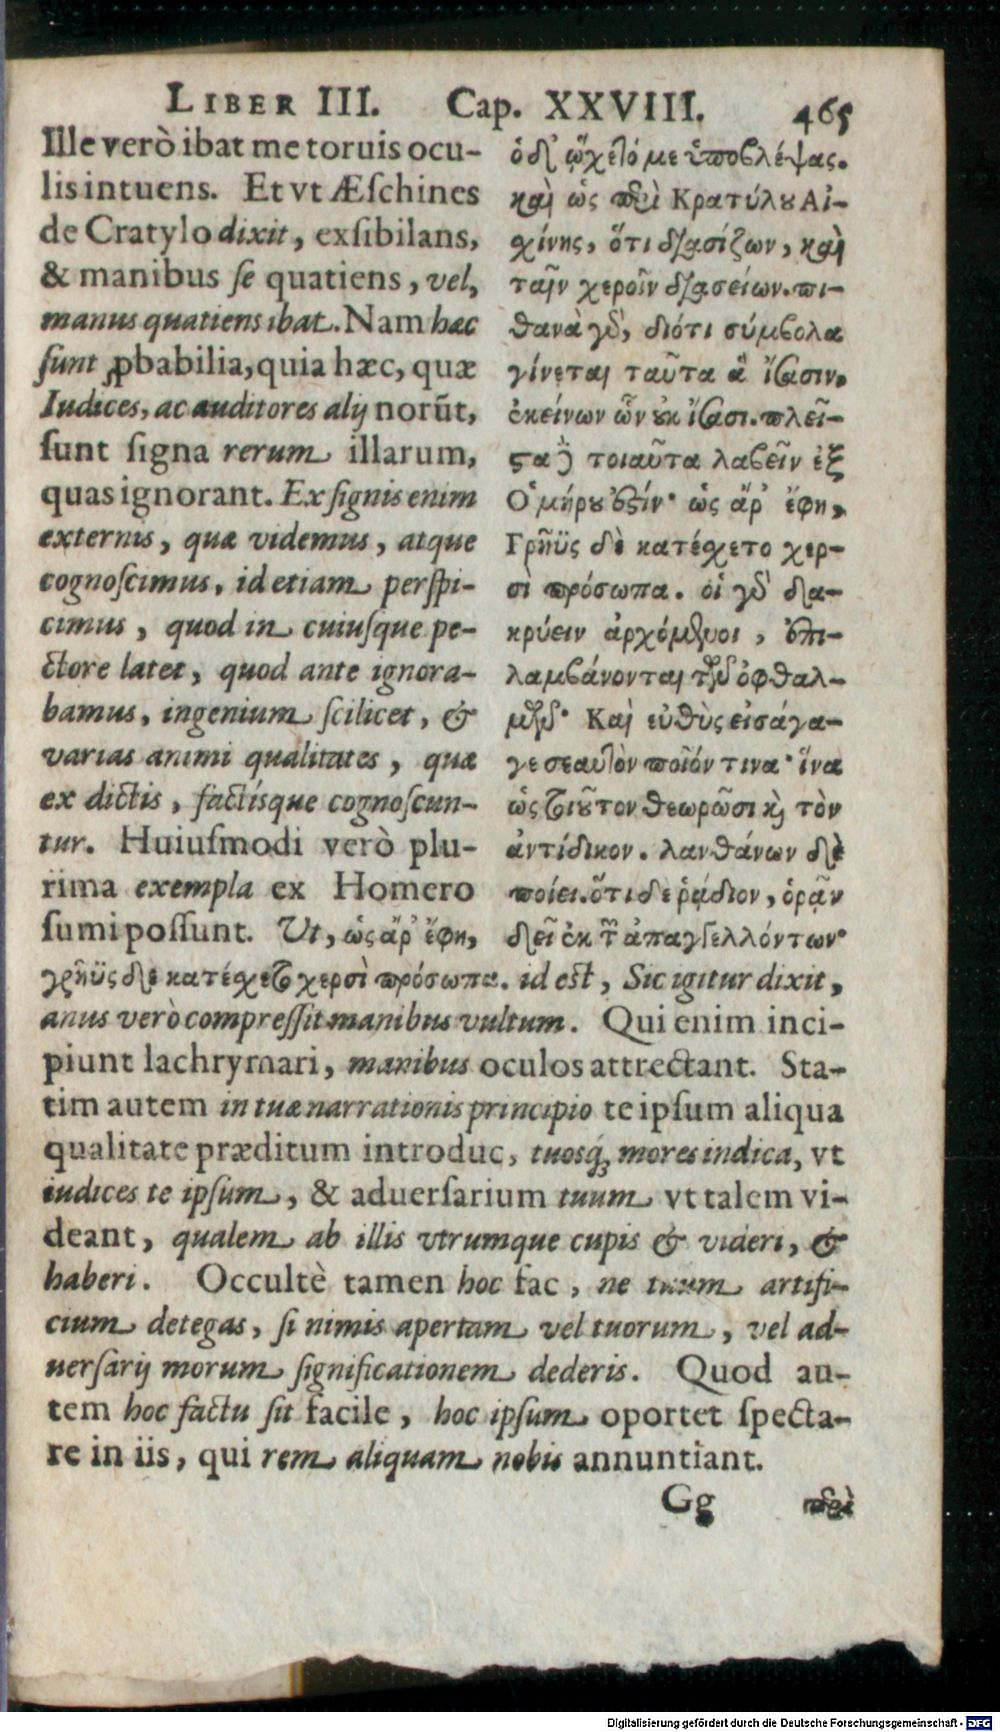 LIBER III. Cap. XXVIII. 465
Ille verò ibat me toruis ocu-
lis intuens. Et vt Æſchines
de Cratylo dixit, exſibilans,
& manibus ſe quatiens, vel,
manus quatiens ibat. Nam hæc
ſunt ꝓbabilia, quia hæc, quæ
Iudices, ac auditores alij norūt,
ſunt ſigna rerum illarum,
quas ignorant. Ex ſignis enim
externis, quæ videmus, atque
cognoſcimus, id etiam perſpi-
cimus, quod in cuiuſque pe-
ctore latet, quod ante ignora-
bamus, ingenium ſcilicet, &
varias animi qualitates, quæ
ex dictis, factiſque cognoſcun-
tur. Huiuſmodi verò plu-
rima exempla ex Homero
ſumi poſſunt. Ut, ὡς ἄρ' ἔφη,
ὁ δ' ᾤχετό με ὑποβλέψας.
καὶ ὡς περὶ Κρατύλου Αἰ-
χίνης, ὅτι διασίζων, καὶ
ταῖν χεροῖν διασείων. πι-
θανὰ γὰρ, διότι σύμβολα
γίνεται ταῦτα ἃ ἴσασιν,
ἐκείνων ὧν οὐκ ἴσασι. πλεῖ-
στα δὲ τοιαῦτα λαβεῖν ἐξ
Ὁμήρου ἐστίν· ὡς ἄρ' ἔφη,
Γρηῢς δὲ κατέχετο χερ-
σὶ πρόσωπα. οἱ γὰρ δα-
κρύειν ἀρχόμενοι, ἐπι-
λαμβάνονται τῶν ὀφθαλ-
μῶν· Καὶ εὐθὺς εἰσάγα-
γε σεαυτὸν ποῖόν τινα· ἵνα
ὡς τοιοῦτον θεωρῶσι καὶ τὸν
ἀντίδικον. λανθάνων δὲ
ποίει. ὅτι δὲ ῥᾴδιον, ὁρᾷν
δεῖ ἐκ τῶν ἀπαγγελλόντων·
γρηῢς δὲ κατέχετο χερσὶ πρόσωπα. id est, Sic igitur dixit,
anus verò compreſſit manibus vultum. Qui enim inci-
piunt lachrymari, manibus oculos attrectant. Sta-
tim autem in tuæ narrationis principio te ipſum aliqua
qualitate præditum introduc, tuosq́; mores indica, vt
iudices te ipſum, & aduerſarium tuum vt talem vi-
deant, qualem ab illis vtrumque cupis & videri, &
haberi. Occultè tamen hoc fac, ne tuum artifi-
cium detegas, ſi nimis apertam vel tuorum, vel ad-
uerſarij morum ſignificationem dederis. Quod au-
tem hoc factu ſit facile, hoc ipſum oportet ſpecta-
re in iis, qui rem aliquam nobis annuntiant.
Gg περὶ
Digitalisierung gefördert durch die Deutsche Forschungsgemeinschaft - DFG